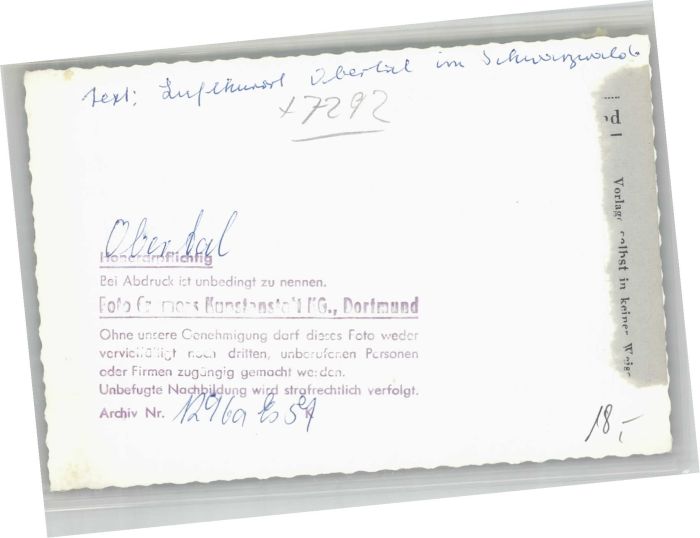 Text: Luftkurort Obertal im Schwarzwald
+7292
Obertal
Honorarpflichtig
Bei Abdruck ist unbedingt zu nennen.
Foto Kunstanstalt KG., Dortmund
Ohne unsere Genehmigung darf dieses Foto weder
vervielfältigt noch dritten, unberufenen Personen
oder Firmen zugängig gemacht werden.
Unbefugte Nachbildung wird strafrechtlich verfolgt.
Archiv Nr.
18,-
Vorlage selbst in keiner Weise